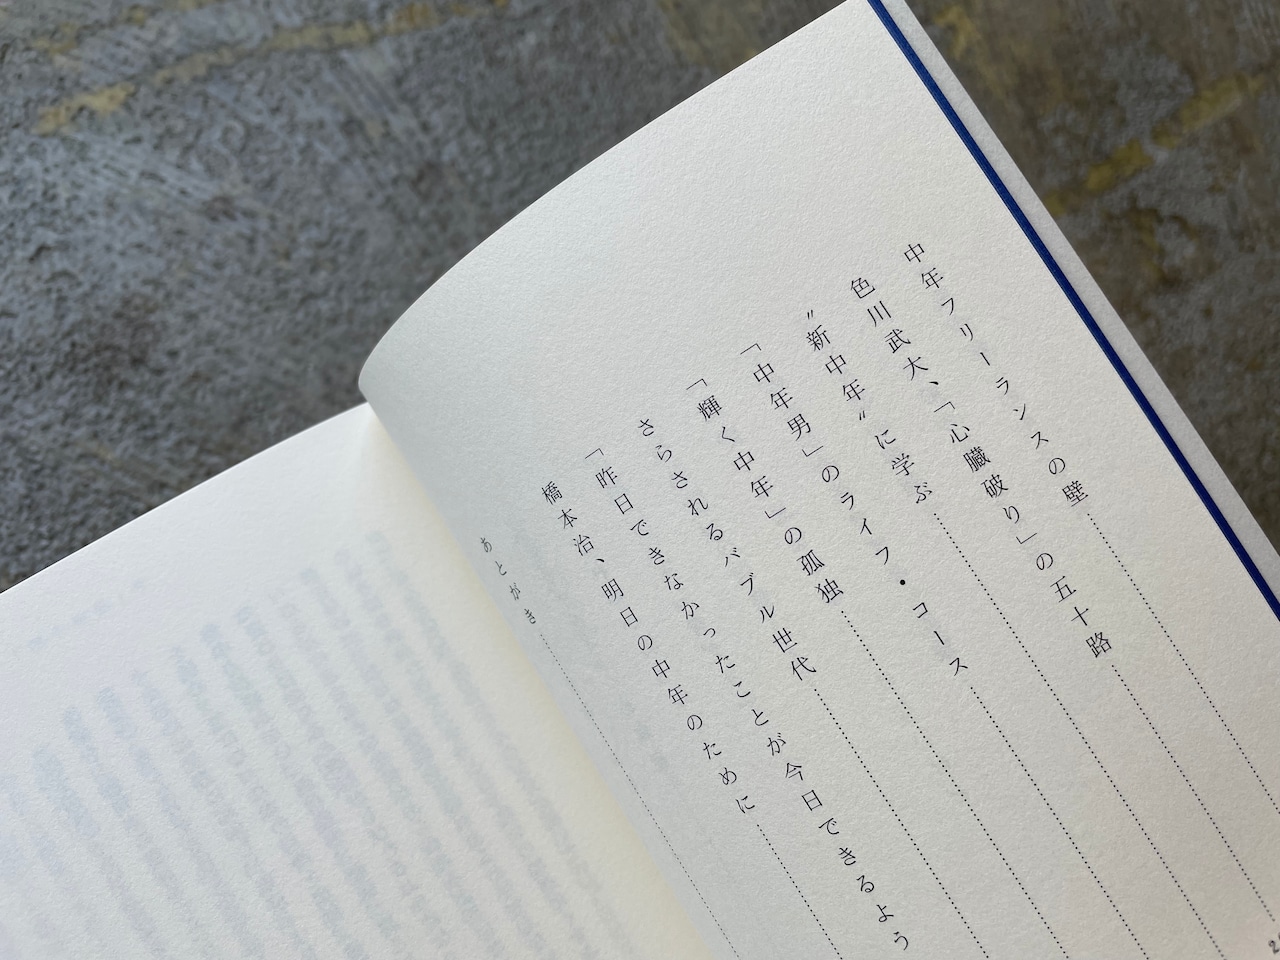 中年フリーランスの壁
色川武大、「心臓破り」の五十路
〝新中年〟に学ぶ
「中年男」のライフ・コース
「輝く中年」の孤独
さらされるバブル世代
「昨日できなかったことが今日できるよう
橋本治、明日の中年のために
あとがき